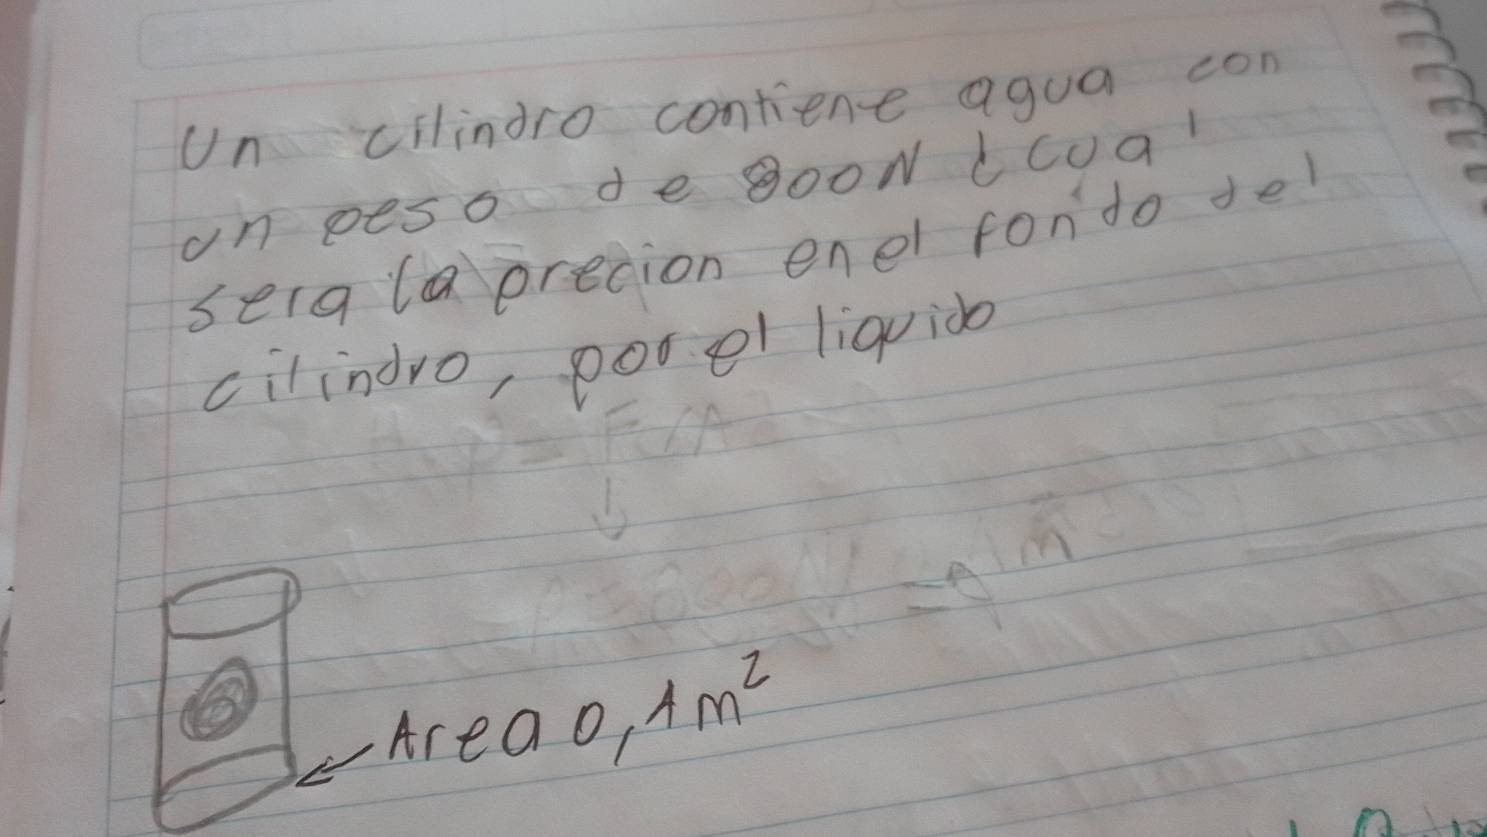 Un cilindro contiene agua con
un peso de 800N ¿cual
sera la precion en el fondo del
cilindro, por el liquido
P = F/A
P = 800N
Area 0,1m²